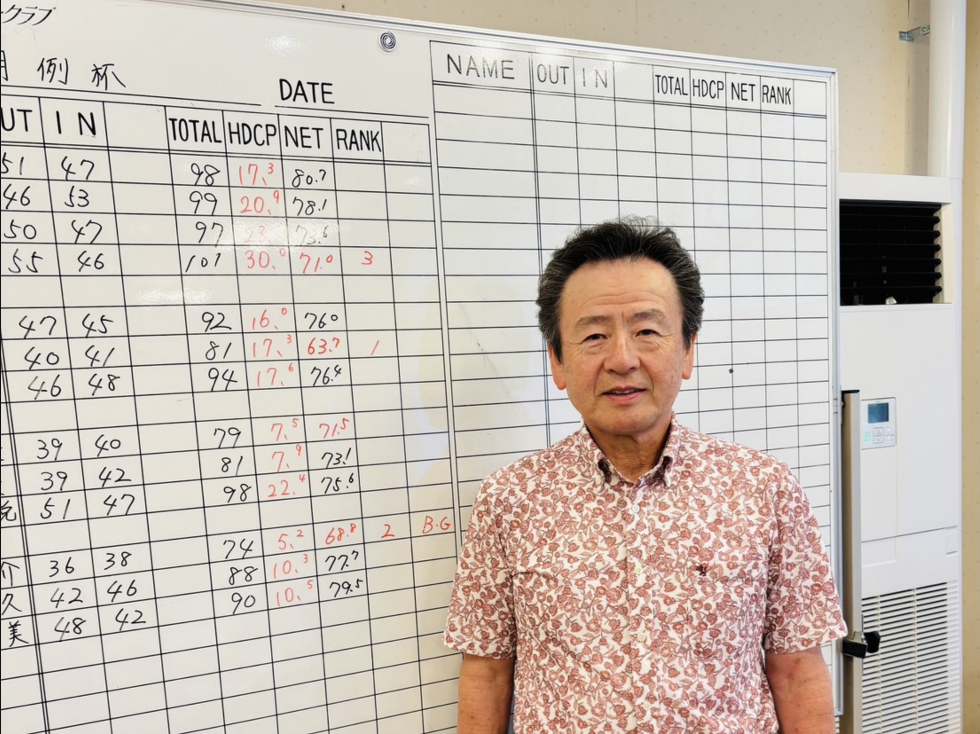 クラブ
月例杯
DATE
UT IN TOTAL HDCP NET RANK
51 47 98 17.3 80.7
46 53 99 20.9 78.1
50 47 97 73.6
55 46 101 30.0 71.0 3
47 45 92 16.0 76.0
40 41 81 17.3 63.7 1
46 48 94 17.6 76.4
39 40 79 7.5 71.5
39 42 81 7.9 73.1
克 51 47 98 22.4 75.6
36 38 74 5.2 68.8 2 B.G
介 42 46 88 10.3 77.7
久 48 42 90 10.5 79.5
美
NAME OUT IN TOTAL HDCP NET RANK